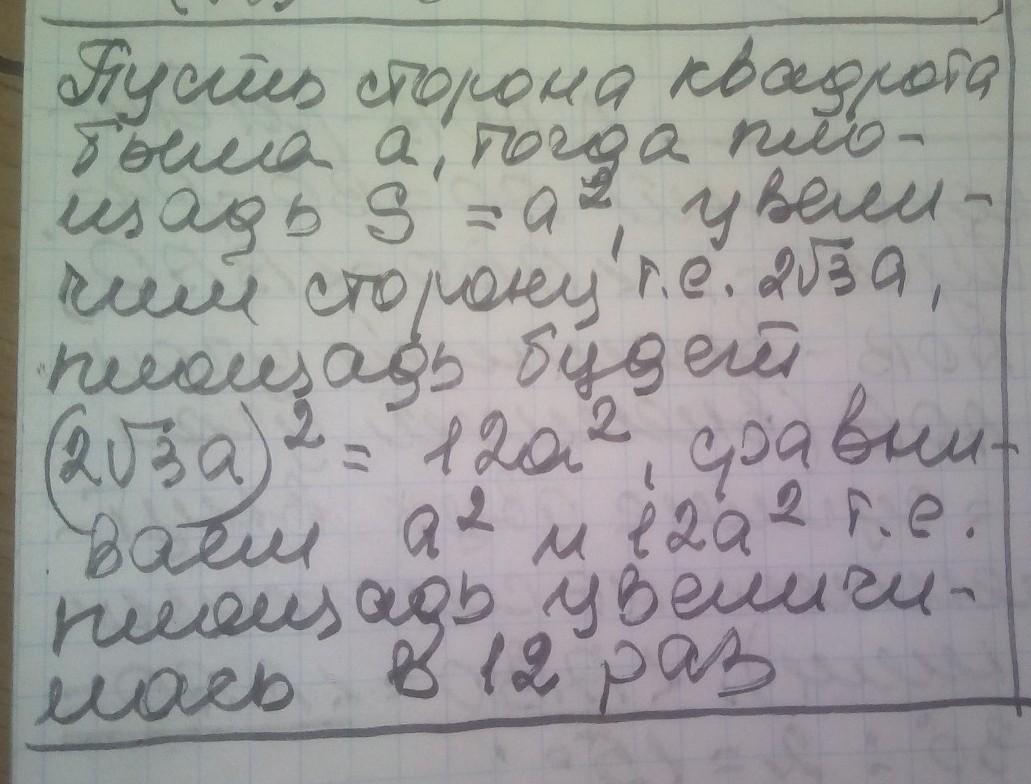 Пусть сторона квадрата
была a, тогда пло-
щадь S = a², увели-
чим сторону т.е. 2√3a,
площадь будет
(2√3a)² = 12a², сравни-
ваем a² и 12a² т.е.
площадь увеличи-
лась в 12 раз